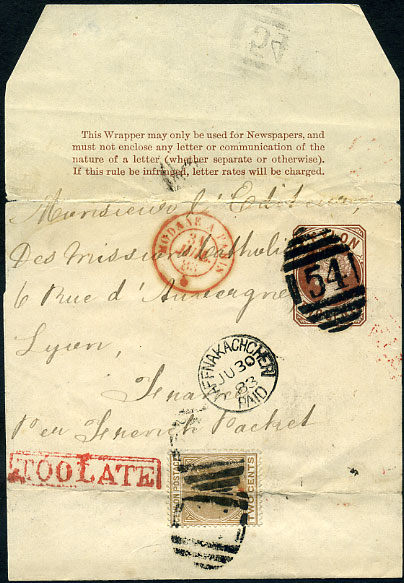 This Wrapper may only be used for Newspapers, and
must not enclose any letter or communication of the
nature of a letter (whether separate or otherwise).
If this rule be infringed, letter rates will be charged.
Monsieur l' Editeur,
MODANE A PARIS
Des Missions Catholi
6 Rue d' Auvergne
54
Lyon,
JU 30
83
PAID
Per French Packet
TOO LATE
CEYLON POSTAGE
TWO CENTS